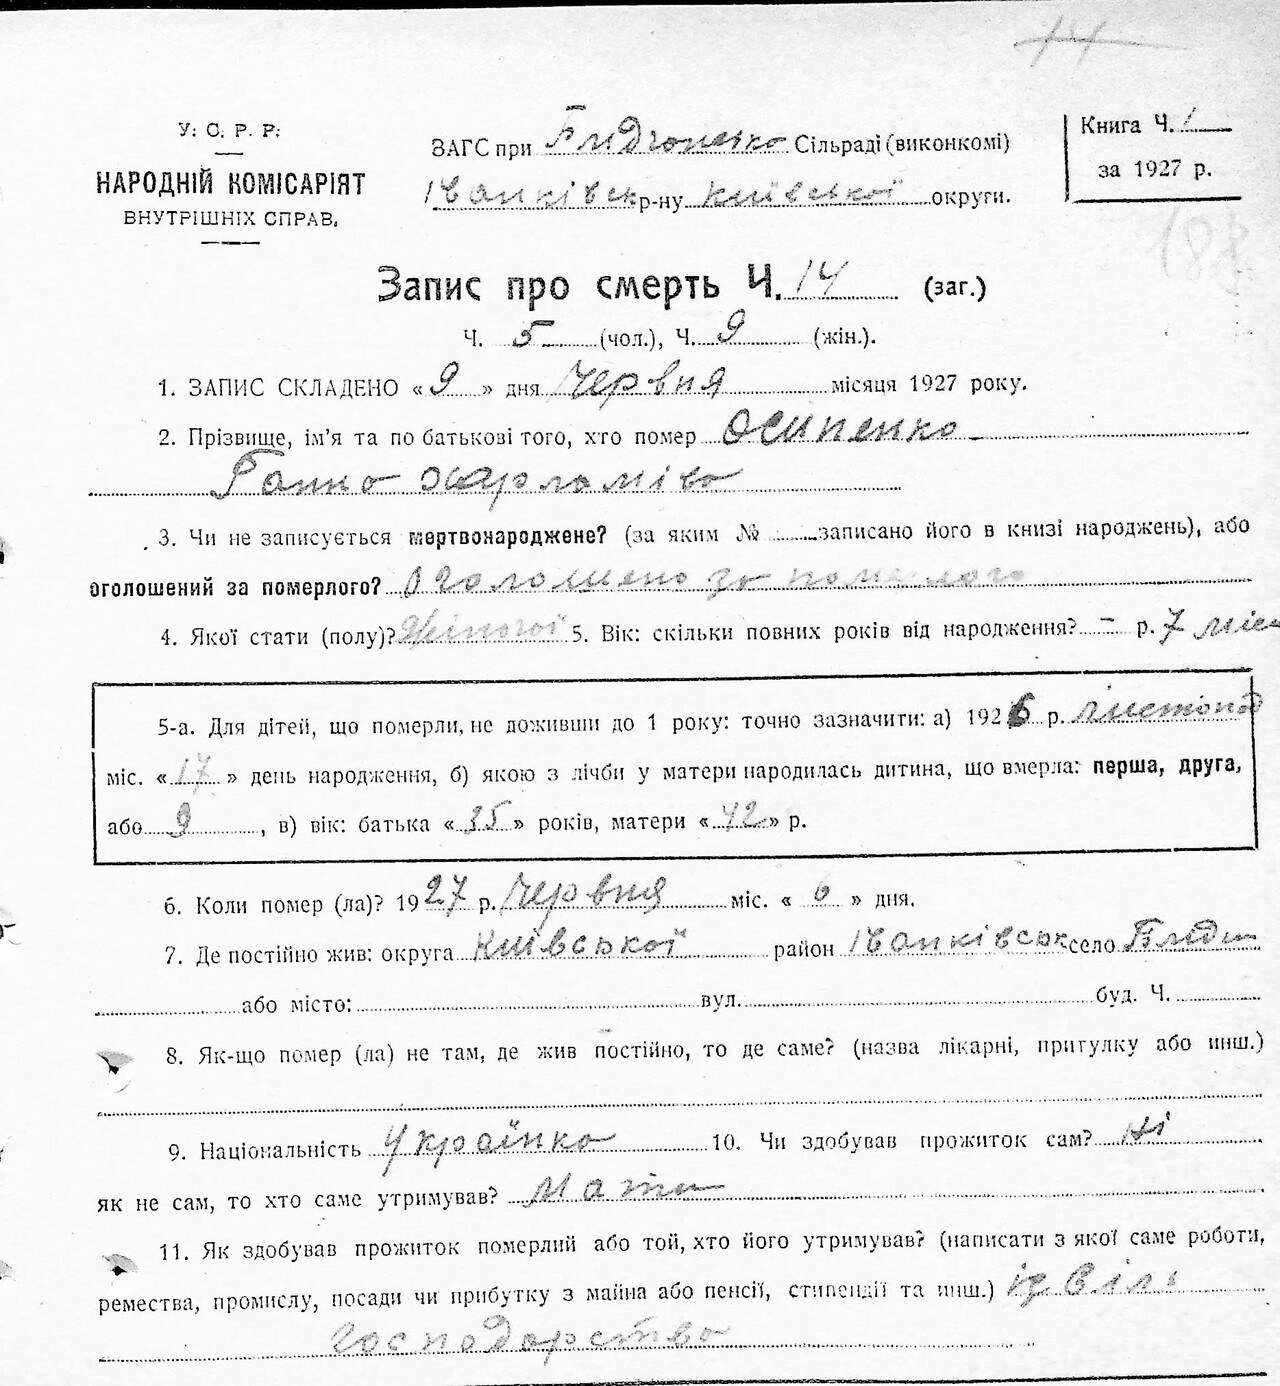 14
У. С. Р. Р.
НАРОДНІЙ КОМІСАРІЯТ
ВНУТРІШНІХ СПРАВ.
ЗАГС при Сільраді (виконкомі)
Іванківськ р-ну Київської округи.
Книга Ч. 1
за 1927 р.
Запис про смерть Ч. 14 (заг.)
Ч. 5 (чол.), Ч. 9 (жін.).
1. ЗАПИС СКЛАДЕНО «9» дня Червня місяця 1927 року.
2. Прізвище, ім'я та по батькові того, хто помер Осипенко
Ганна Харламіва
3. Чи не записується мертвонароджене? (за яким № записано його в книзі народжень), або
оголошений за померлого? Оголошено за померлого
4. Якої стати (полу)? Жіночої 5. Вік: скільки повних років від народження? – р. 7 міся
5-а. Для дітей, що померли, не доживши до 1 року: точно зазначити: а) 1926 р. листопад
міс. «17» день народження, б) якою з лічби у матери народилась дитина, що вмерла: перша, друга,
або 9, в) вік: батька «35» років, матери «42» р.
6. Коли помер (ла)? 1927 р. Червня міс. «6» дня.
7. Де постійно жив: округа Київської район Іванківськ село
або місто: вул. буд. Ч.
8. Як-що помер (ла) не там, де жив постійно, то де саме? (назва лікарні, притулку або инш.)
9. Національність Українка 10. Чи здобував прожиток сам? Ні
як не сам, то хто саме утримував? Мати
11. Як здобував прожиток померлий або той, хто його утримував? (написати з якої саме роботи,
ремества, промислу, посади чи прибутку з майна або пенсії, стипендії та инш.) із сіль
господарства